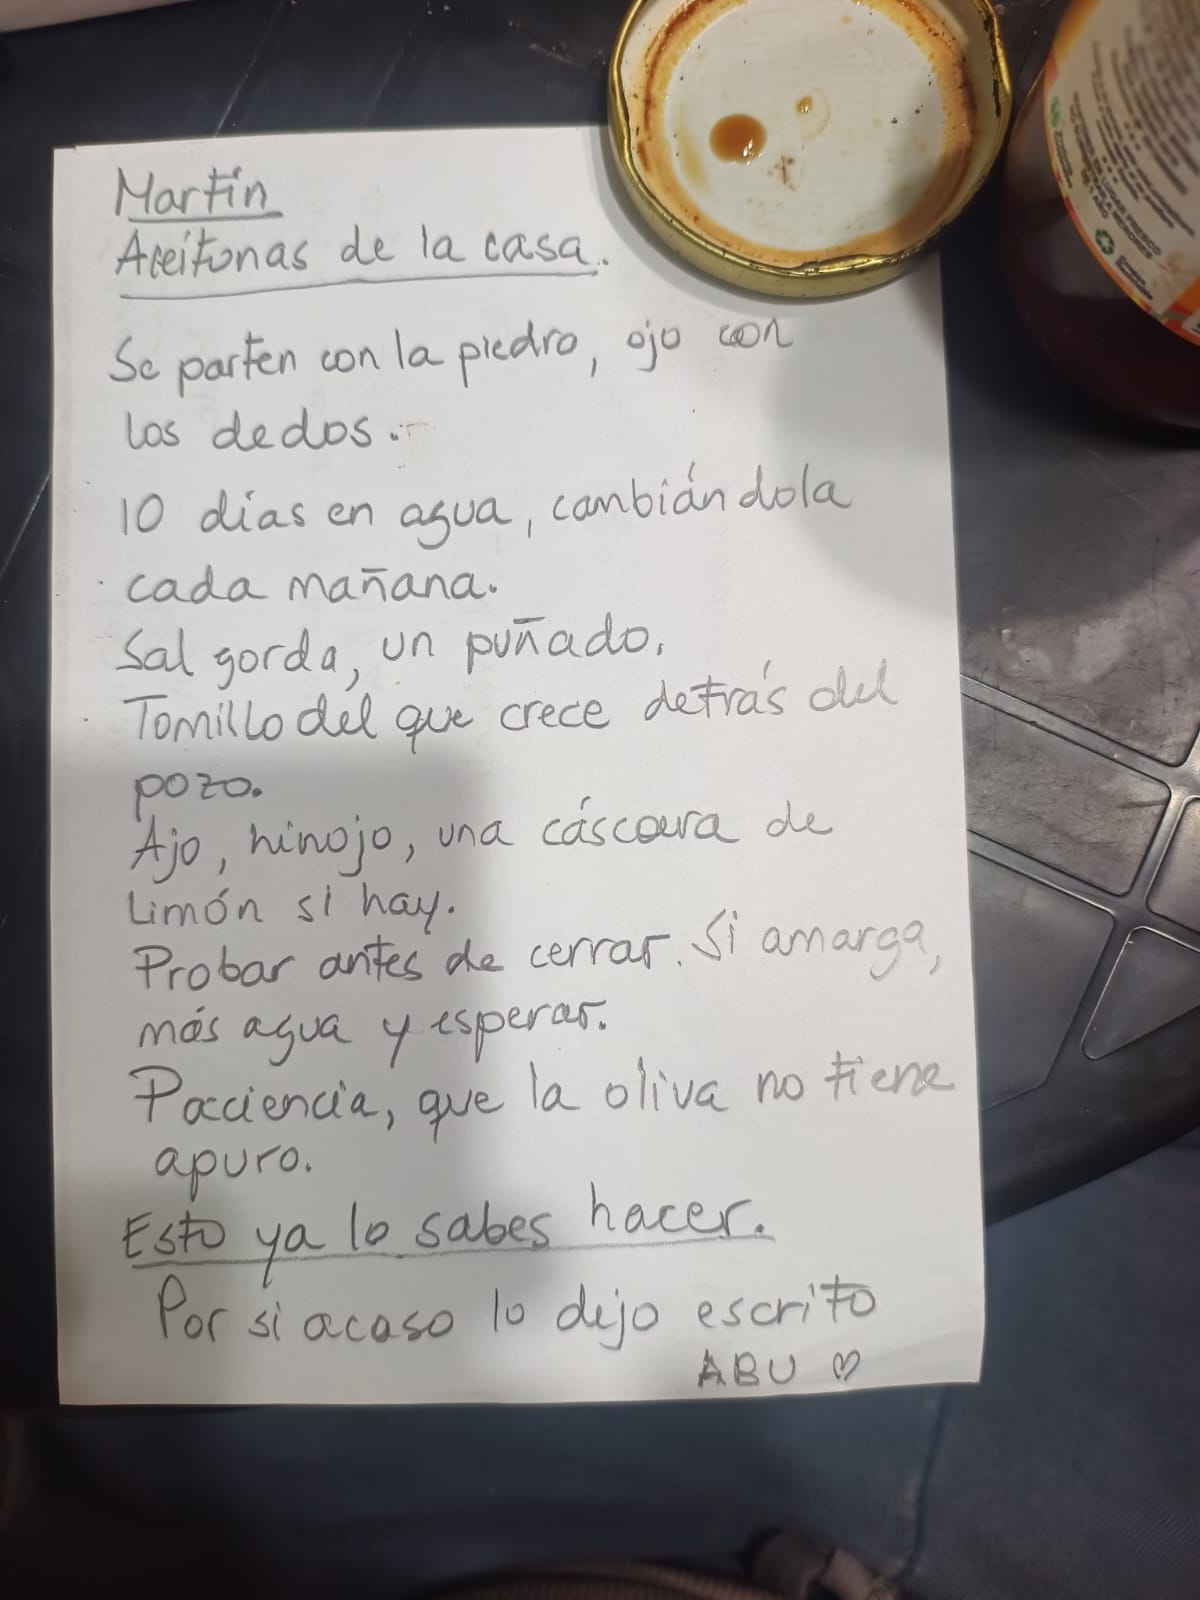 Martín
Aceitonas de la casa.
Se parten con la piedra, ojo con
los dedos.
10 días en agua, cambiándola
cada mañana.
Sal gorda, un puñado.
Tomillo del que crece detrás del
pozo.
Ajo, hinojo, una cáscara de
Limón si hay.
Probar antes de cerrar. Si amarga,
más agua y esperar.
Paciencia, que la oliva no tiene
apuro.
Esto ya lo sabes hacer.
Por si acaso lo dejo escrito
ABU ♡